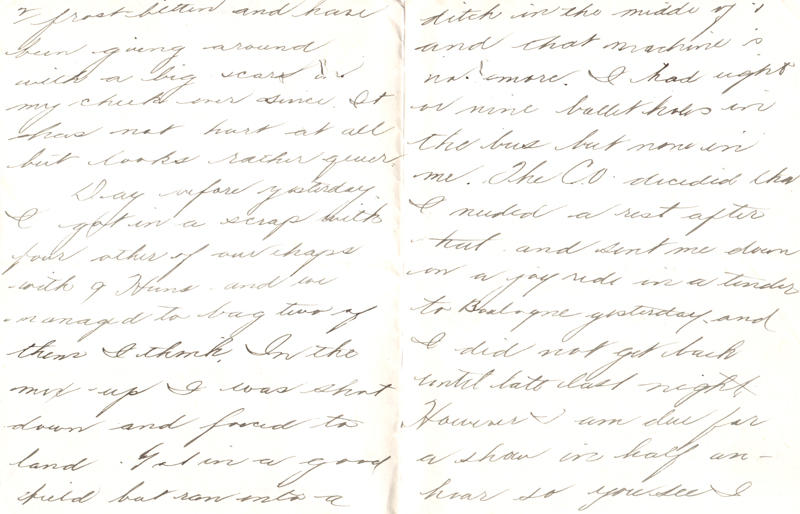 frost-bitten and have
been going around
with a big scars on
my cheek ever since. It
has not hurt at all
but looks rather queer.
Day before yesterday
I got in a scrap with
four other of our chaps
with 9 Huns and we
managed to bag two of
them I think. In the
mix-up I was shot
down and forced to
land. Got in a good
field but ran into a
ditch in the middle of it
and that machine is
no more. I had eight
or nine bullet holes in
the bus but none in
me. The C.O. decided tha
I needed a rest after
that and sent me down
on a joy ride in a tender
to Boulogne yesterday and
I did not get back
until late last night
However I am due for
a show in half an-
hour so you see I